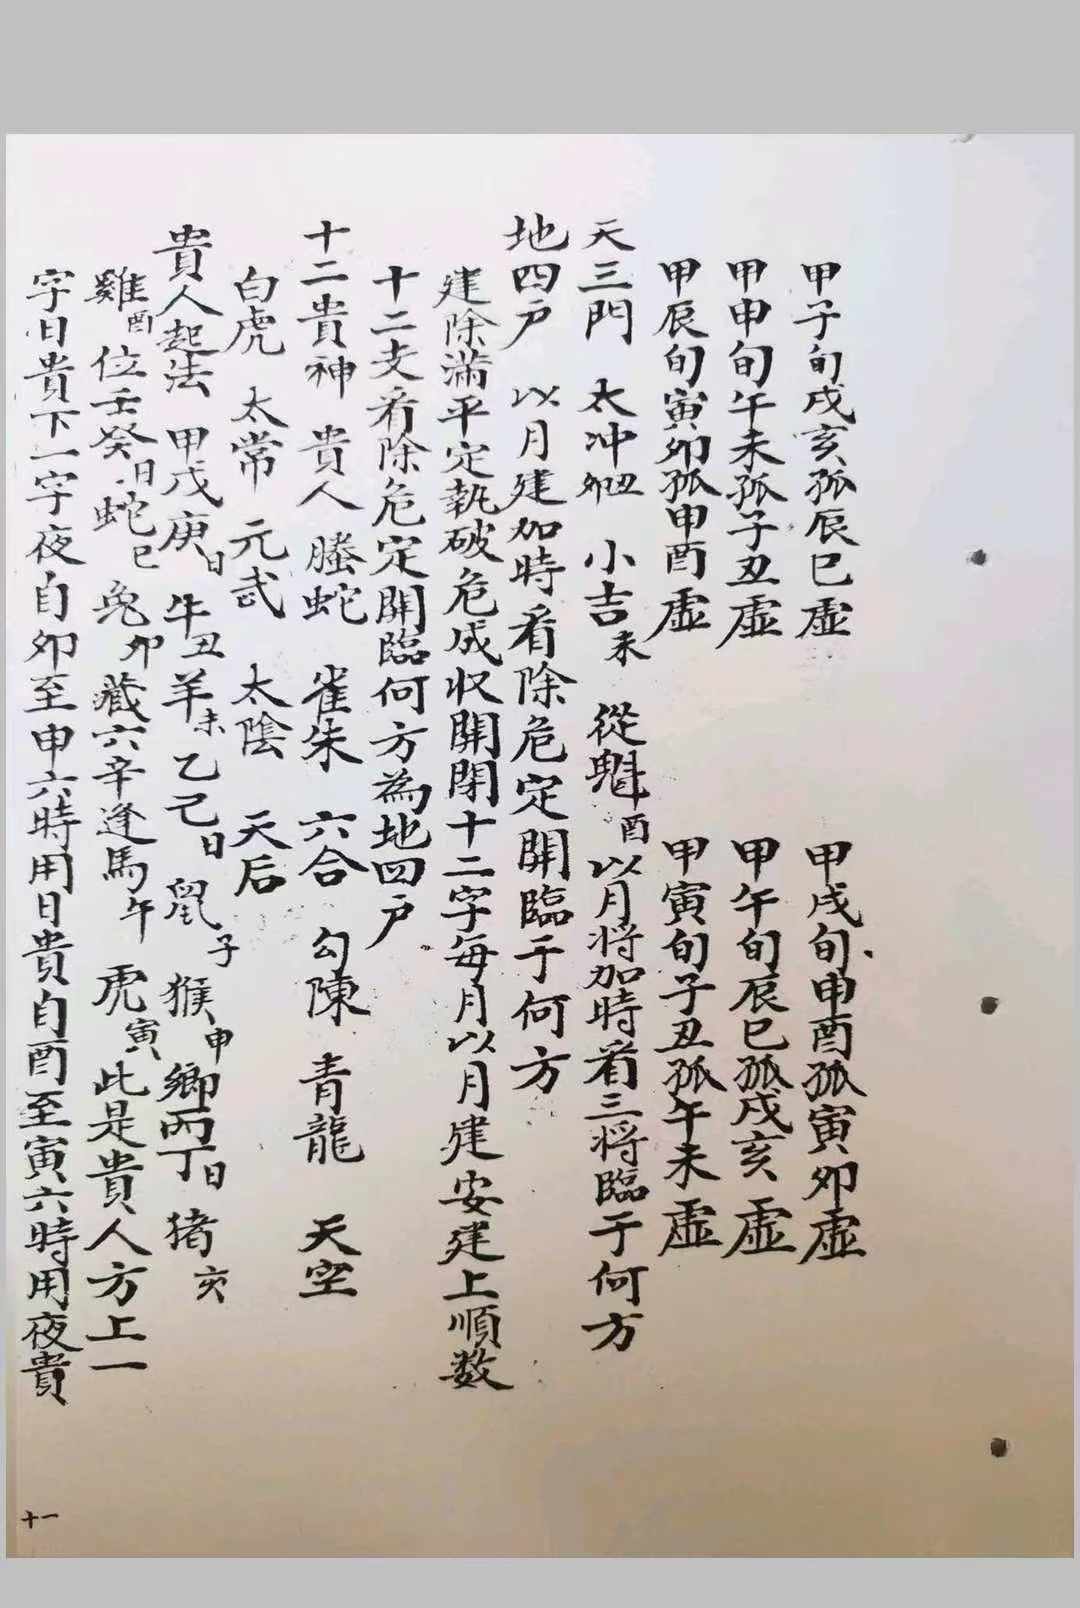 甲子旬戌亥孤辰巳虛　甲戌旬申酉孤寅卯虛
甲申旬午未孤子丑虛　甲午旬辰巳孤戌亥虛
甲辰旬寅卯孤申酉虛　甲寅旬子丑孤午未虛
天三門　太冲卯　小吉未　從魁酉以月将加時看三将臨于何方
地四户　以月建加時看除危定開臨于何方
建除滿平定執破危成收開閉十二字每月以月建安建上順数
十二支看除危定開臨何方為地四户
十二貴神　貴人　螣蛇　雀朱　六合　勾陳　青龍　天空
白虎　太常　元武　太陰　天后
貴人起法　甲戊庚日牛丑羊未乙己日鼠子猴申鄉丙丁日猪亥
雞酉位壬癸日蛇巳兔卯藏六辛逢馬午虎寅此是貴人方上一
字日貴下一字夜自卯至申六時用日貴自酉至寅六時用夜貴
十一